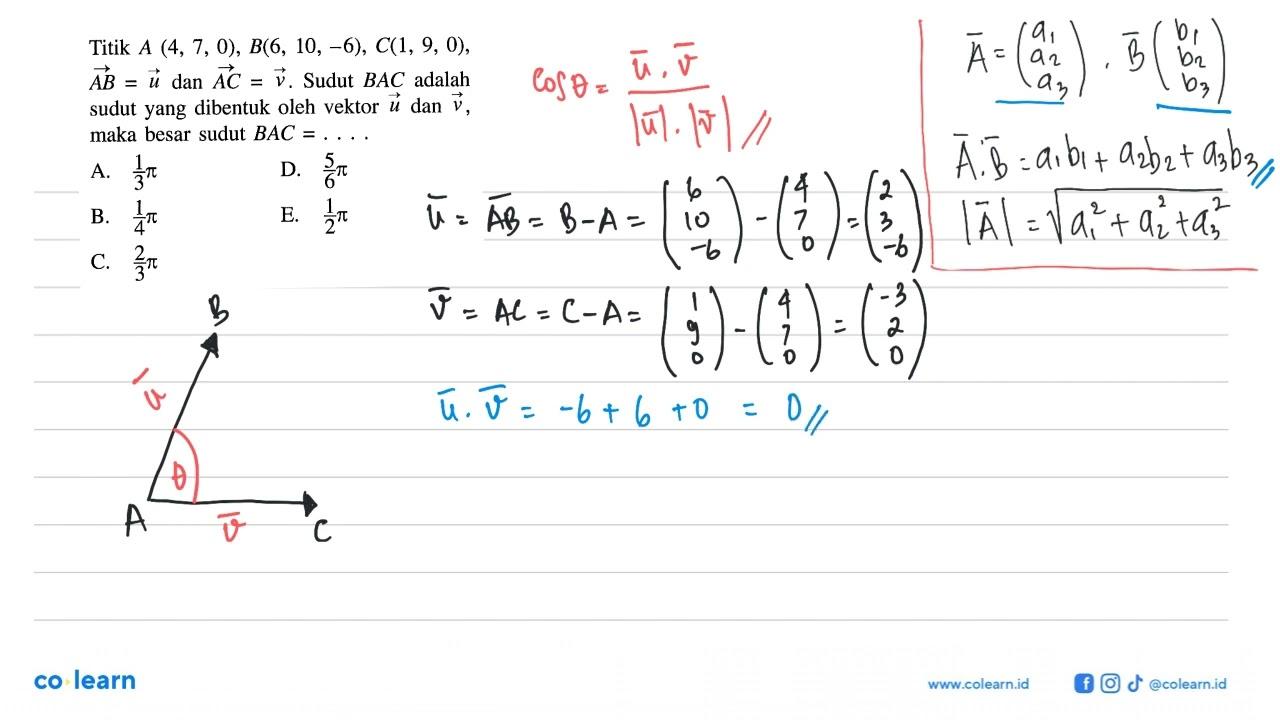 Titik A (4, 7, 0), B(6, 10, –6), C(1, 9, 0),
AB = u dan AC = v. Sudut BAC adalah
sudut yang dibentuk oleh vektor u dan v,
maka besar sudut BAC = . . . .
A. 1/3 π
B. 1/4 π
C. 2/3 π
D. 5/6 π
E. 1/2 π
cos θ = u̅ . v̅ / |u̅| . |v̅| //
A̅ = (a₁ a₂ a₃) . B̅ (b₁ b₂ b₃)
A̅.B̅ = a₁b₁ + a₂b₂ + a₃b₃ //
|A̅| = √a₁² + a₂² + a₃²
u̅ = A̅B̅ = B – A = (6 10 -6) – (4 7 0) = (2 3 -6)
v̅ = AC = C – A = (1 9 0) – (4 7 0) = (-3 2 0)
u̅ . v̅ = -6 + 6 + 0 = 0 //
B
u̅
θ
A
v̅
C
co learn
www.colearn.id
@colearn.id